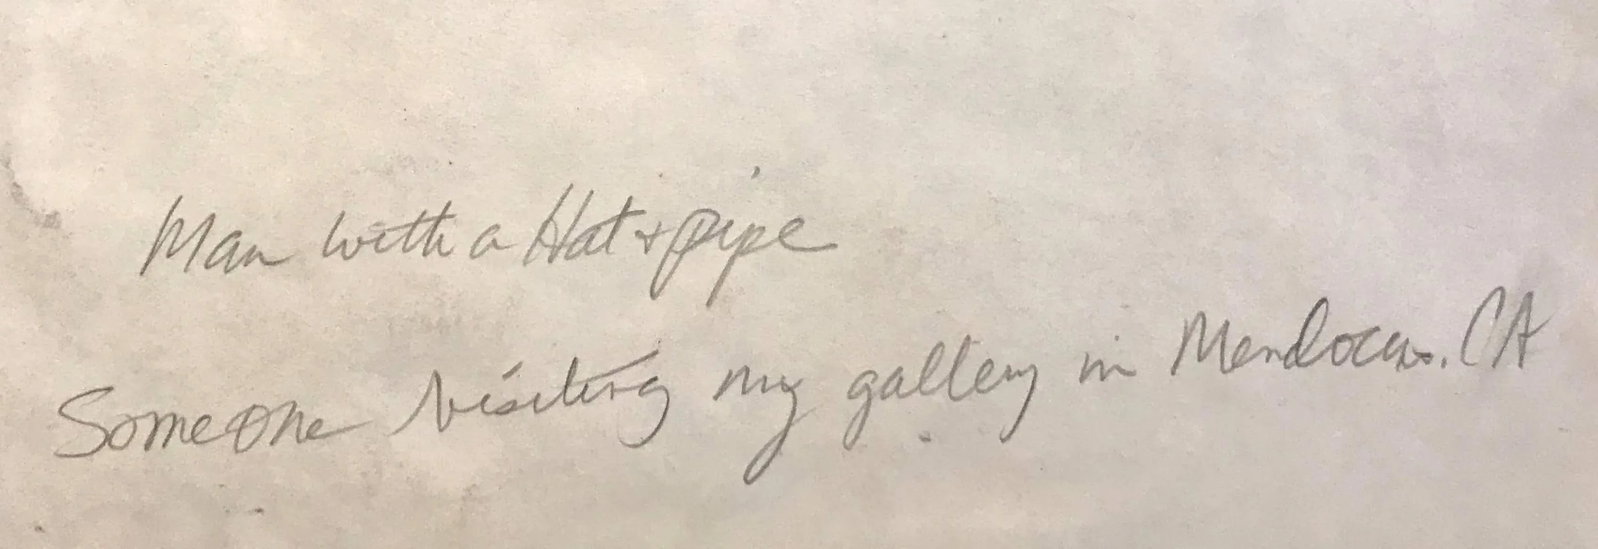 Man with a Hat + pipe
Someone visiting my gallery in Mendocino. CA